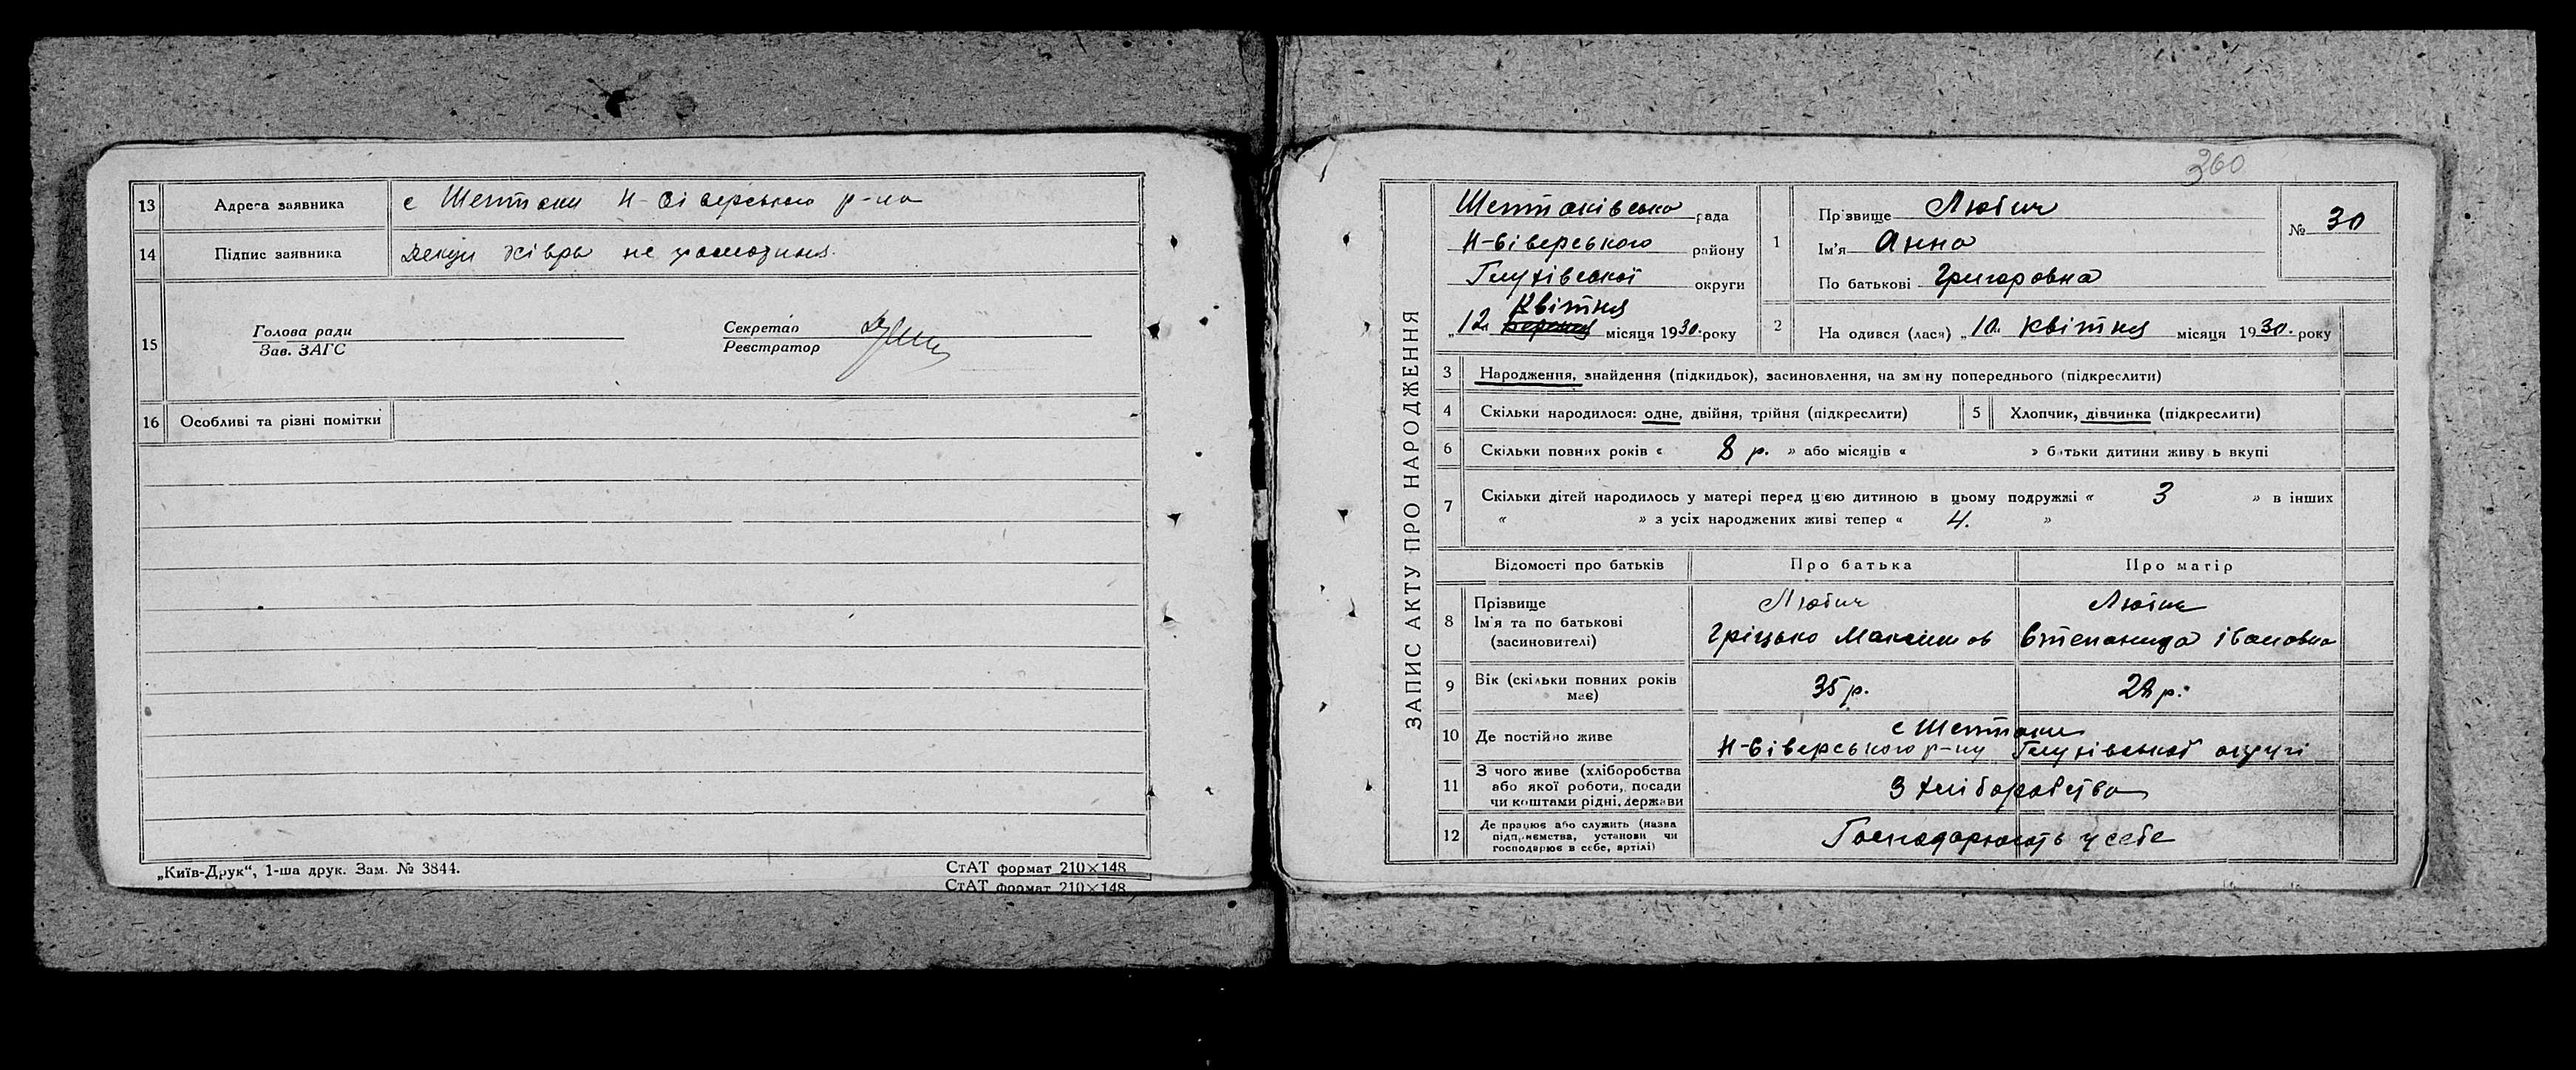 13 Адреса заявника с Шептаки Н-Сіверського р-на
14 Підпис заявника не грамотния.
15 Голова ради
Зав. ЗАГС
Секретар
Реєстратор
16 Особливі та різні помітки
„Київ-Друк“, 1-ша друк. Зам. № 3844.
СтАТ формат 210×148
СтАТ формат 210×148
360
ЗАПИС АКТУ ПРО НАРОДЖЕННЯ
Шептаківська рада
Н-Сіверського району
Глухівської округи
Квітня
„12 місяця 1930 року
1 Прізвище Любич
Ім'я Анна
По батькові Григоровна
№ 30
2 На одився (лася) „10 квітня місяця 1930. року
3 Народження, знайдення (підкидьок), засиновлення, на зм ну попереднього (підкреслити)
4 Скільки народилося: одне, двійня, трійня (підкреслити)
5 Хлопчик, дівчинка (підкреслити)
6 Скільки повних років « 8 р. » або місяців « » батьки дитини живу ь вкупі
7 Скільки дітей народилось у матері перед цією дитиною в цьому подружжі « 3 » в інших
« » з усіх народжених живі тепер « 4. »
Відомості про батьків Про батька Про матір
8 Прізвище Любич Любич
Ім'я та по батькові
(засиновителі) Гріцько Максимов Степанида Івановна
9 Вік (скільки повних років
має) 35 р. 28 р.
10 Де постійно живе с Шептаки
Н-Сіверського р-ну Глухівської округи
11 З чого живе (хліборобства
або якої роботи, посади
чи коштами рідні, держави
З хліборобства
12 Де працює або служить (назва
підприємства, установи чи
господарює в себе, артілі)
Господарюють у себе